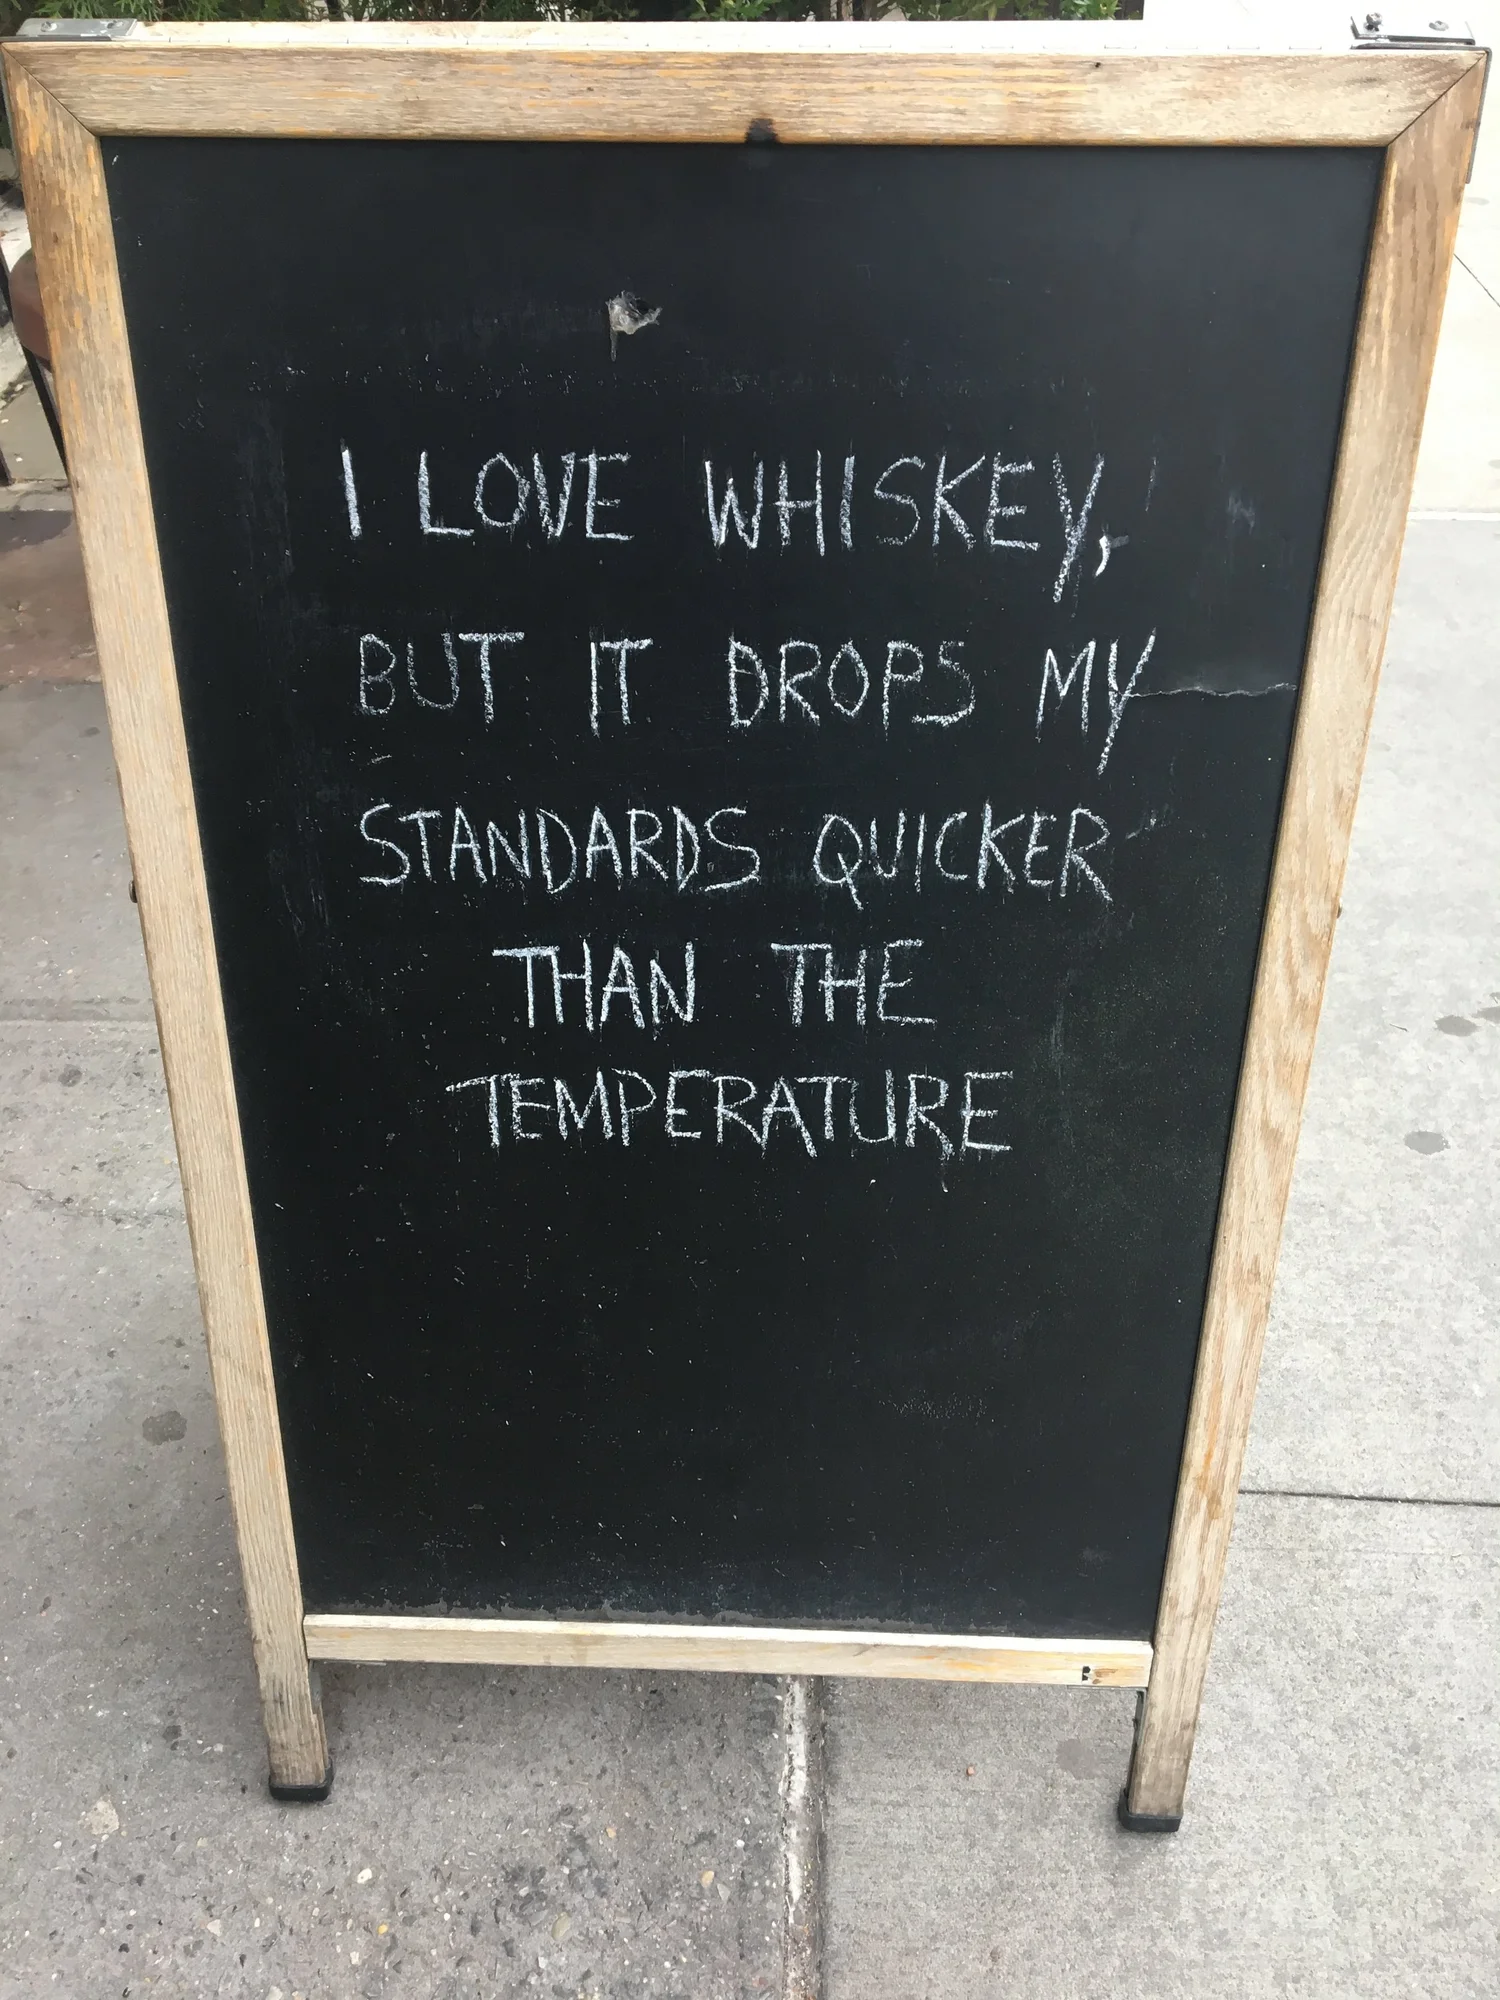 I LOVE WHISKEY,
BUT IT DROPS MY
STANDARDS QUICKER
THAN THE
TEMPERATURE